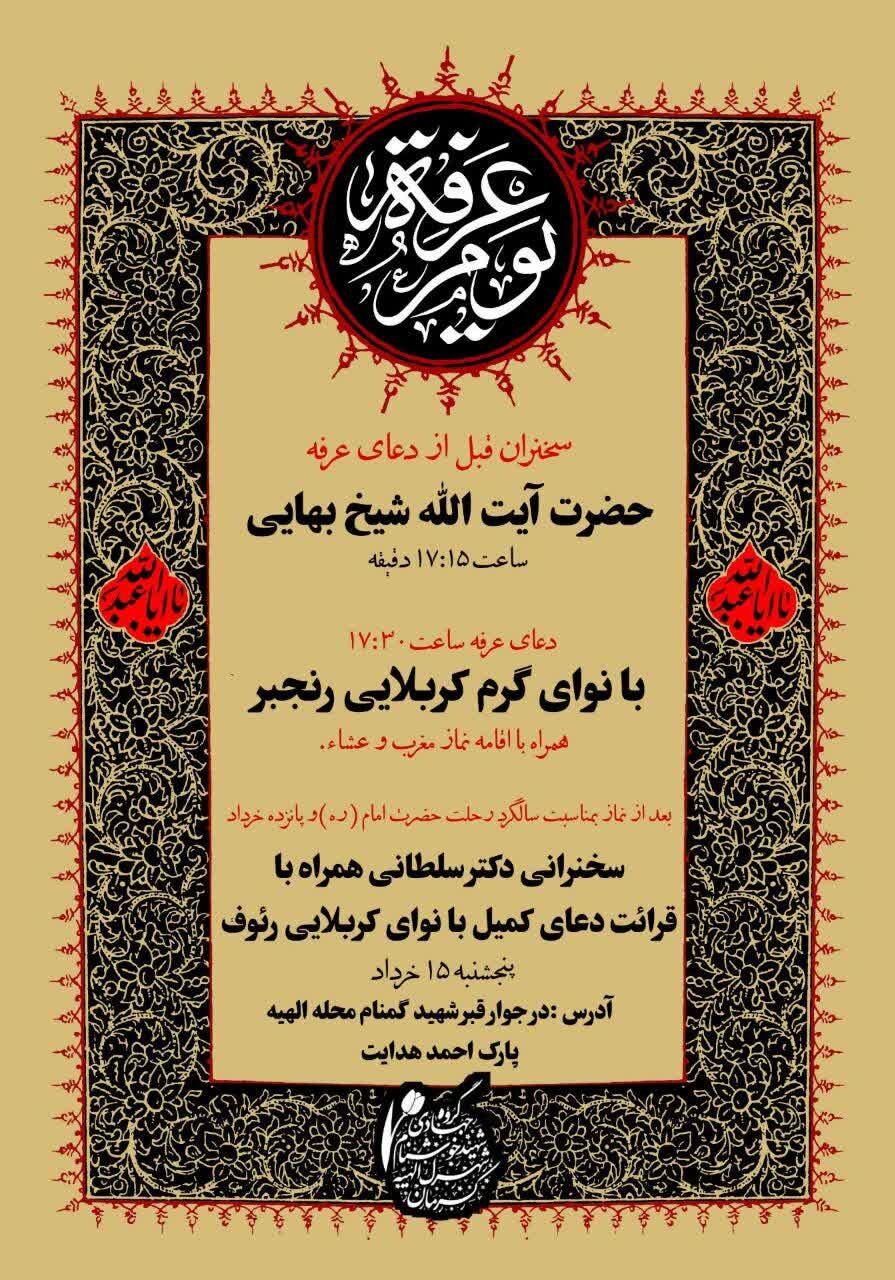 یوم عرفة
سخنران قبل از دعای عرفه
حضرت آیت الله شیخ بهایی
ساعت ۱۷:۱۵ دقیقه
یا اباعبدالله
یا اباعبدالله
دعای عرفه ساعت ۱۷:۳۰
با نوای گرم کربلایی رنجبر
همراه با اقامه نماز مغرب و عشاء.
بعد از نماز بمناسبت سالگرد رحلت حضرت امام (ره) و پانزده خرداد
سخنرانی دکتر سلطانی همراه با
قرائت دعای کمیل با نوای کربلایی رئوف
پنجشنبه ۱۵ خرداد
آدرس : در جوار قبر شهید گمنام محله الهیه
پارک احمد هدایت
گروه جهادی